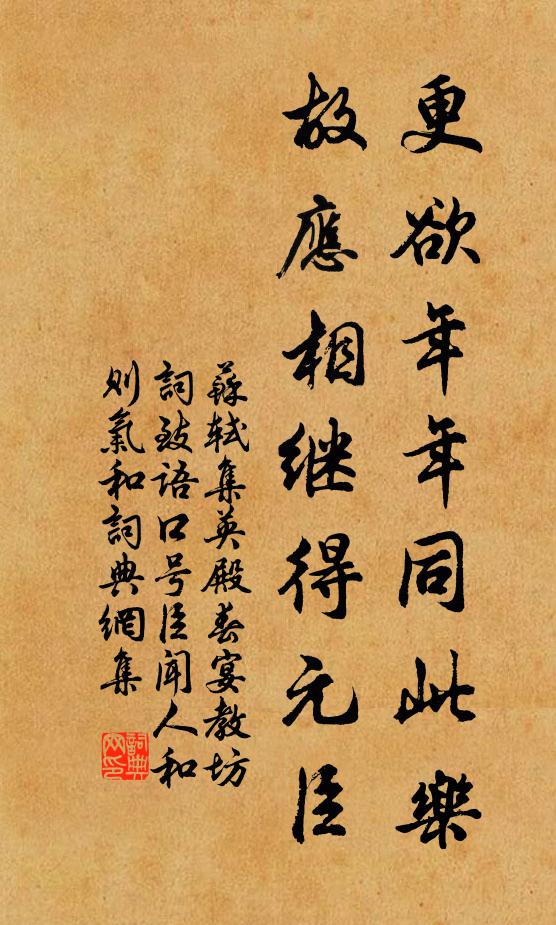 更欲年年同此樂
故應相继得元臣
蘇軾集英殿春宴教坊
詞致語口号臣聞人和
則氣和詞典網集
詞典
网印